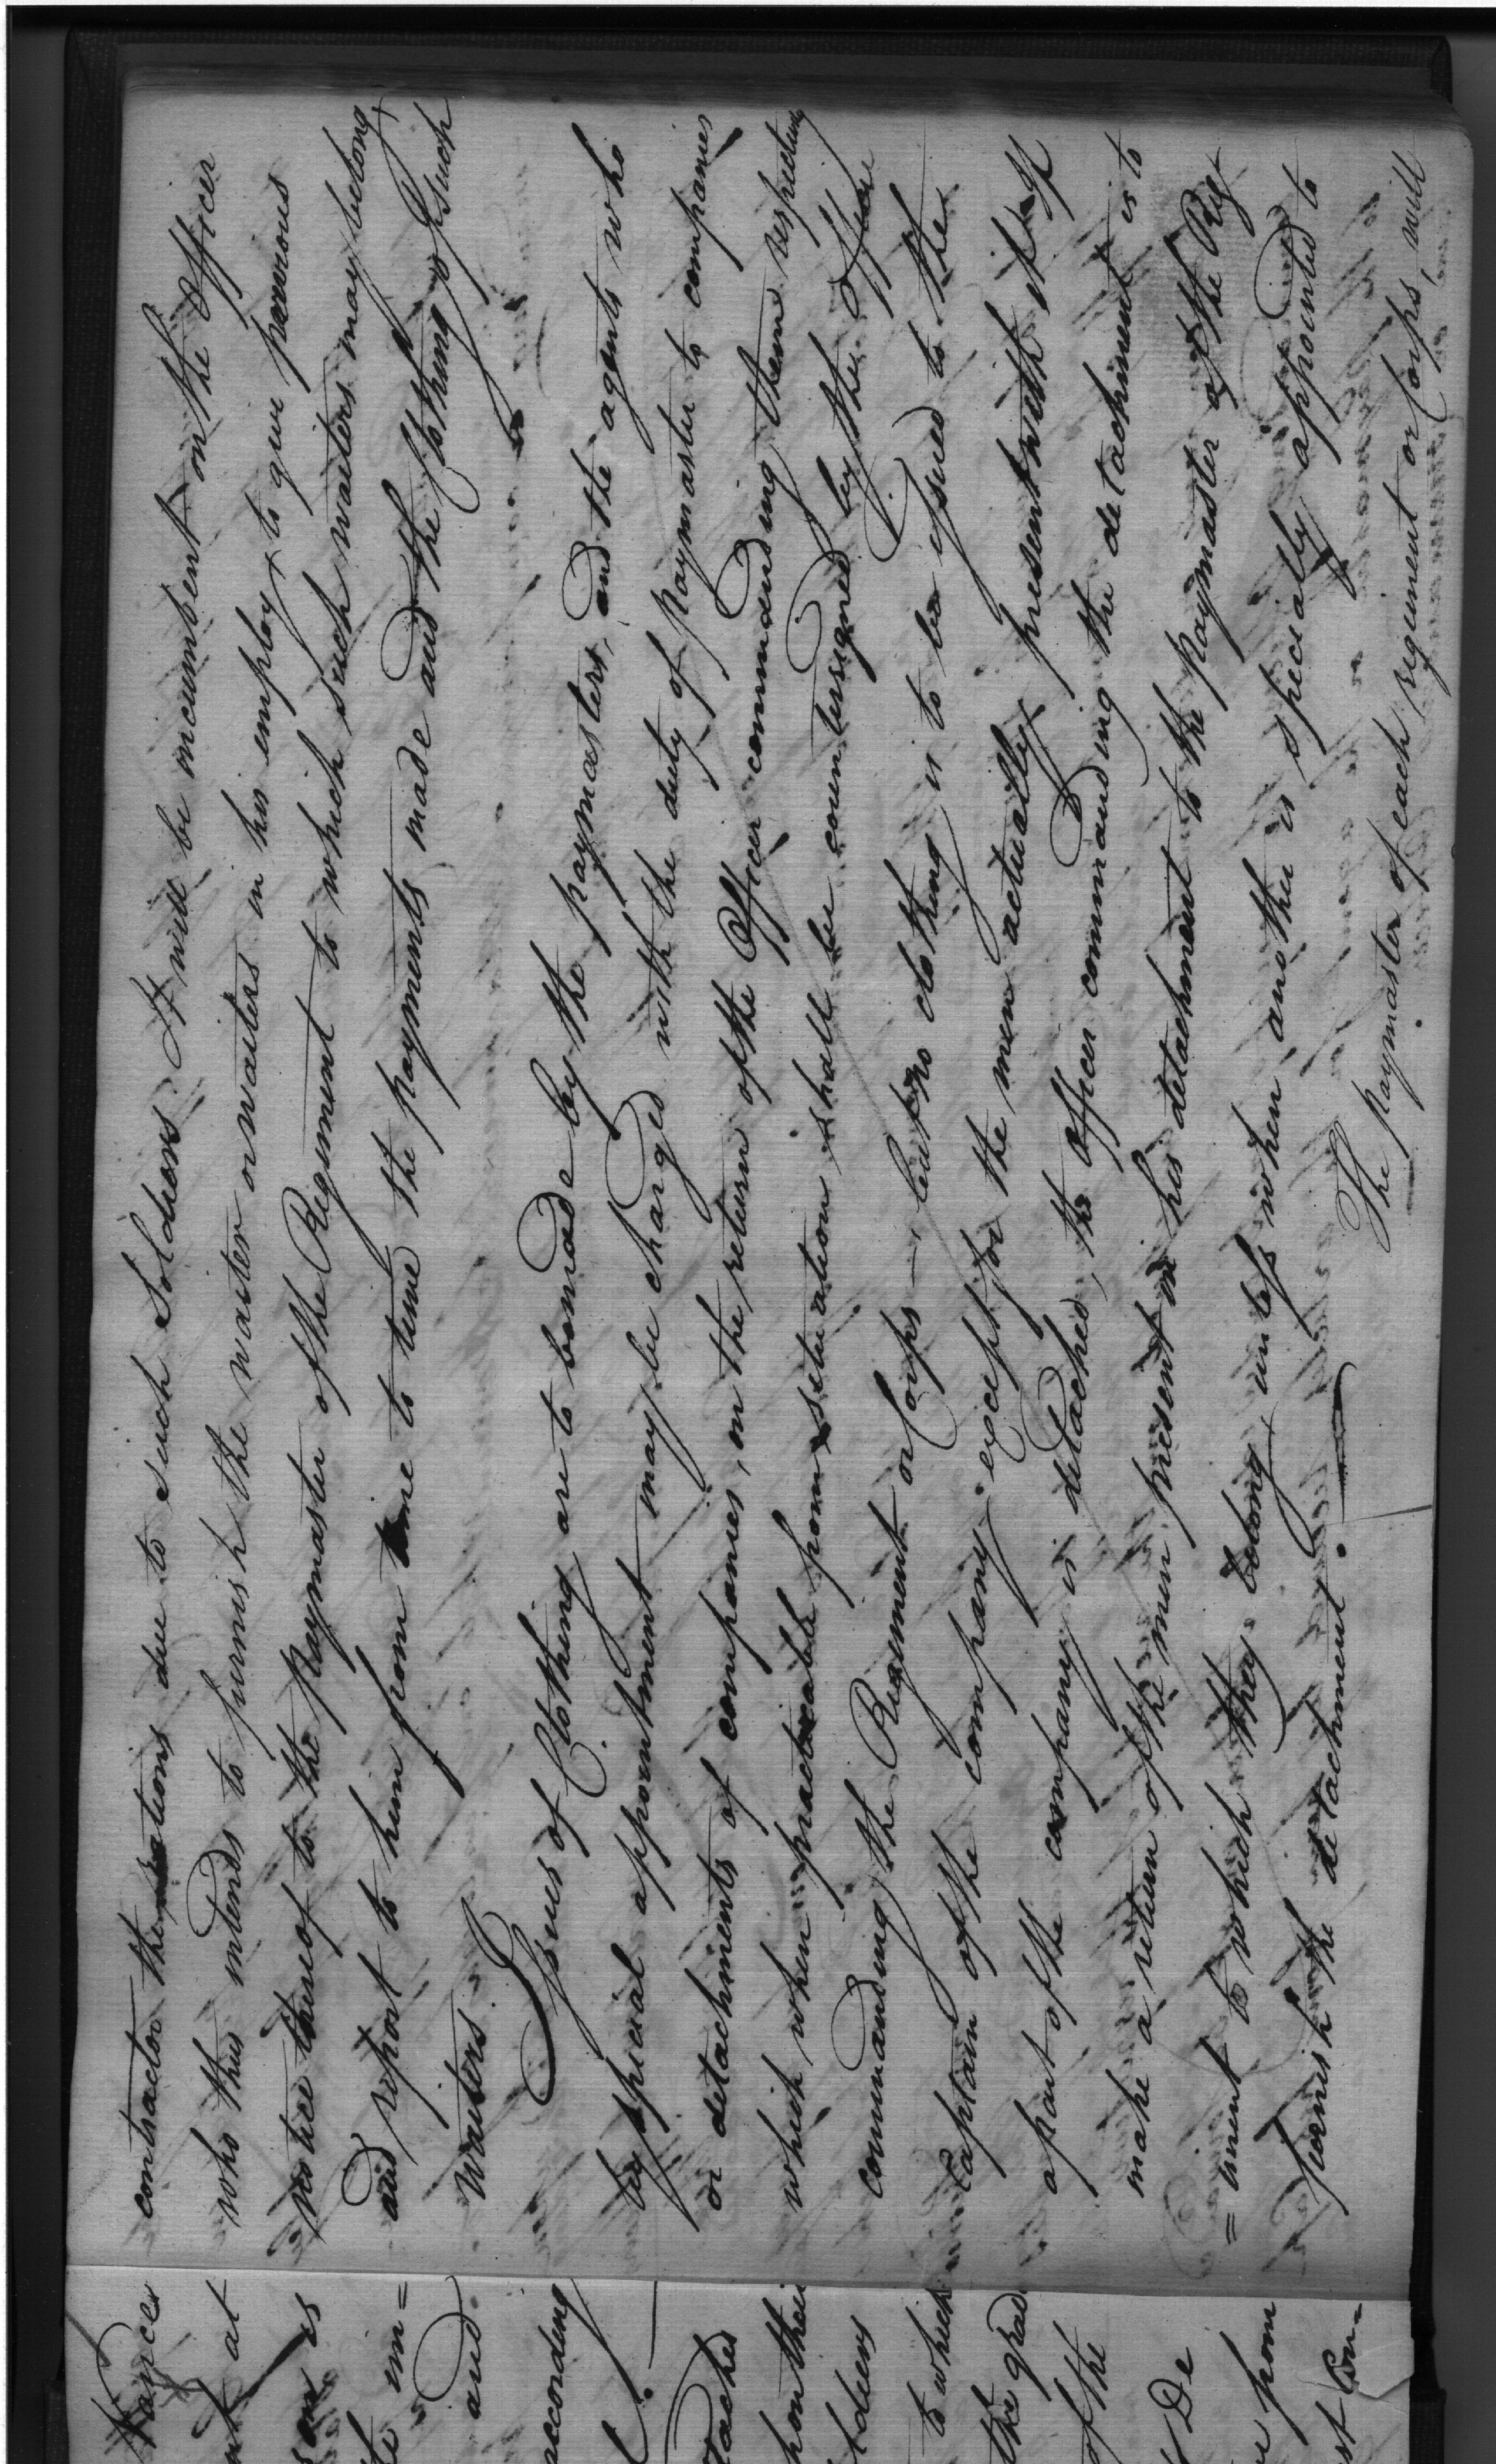 contractor the rations due to such Soldiers. It will be incumbent on the Officer
who thus intends to furnish the waiter or waiters in his employ to give previous
notice thereof to the Paymaster of the Regiment to which such waiters may belong,
and report to him from time to time the payments made and the Clothing of such
waiters.
Issues of Clothing are to be made by the paymasters, and the agents who
by special appointment may be charged with the duty of paymaster to companies
or detachments of companies, on the return of the Officer commanding them respectively
which when practicable from situation shall be countersigned by the Officer
commanding the Regiment or Corps — but no clothing is to be issued to the
Captain of the company except for the men actually present with it if
a part of the company is detached, the officer commanding the detachment is to
make a return of the men present in his detachment to the paymaster of the Reg-
=iment to which they belong unless when another is specially appointed to
furnish the detachment.
The paymaster of each regiment or Corps, will
at
is
em=
and
according
to which
of the
De
from